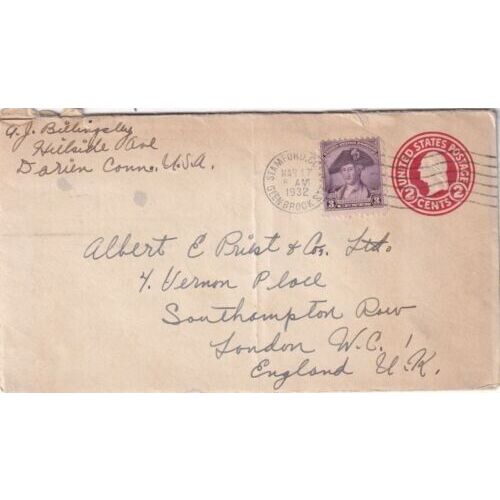 A.J. Billingsley
Hillside Ave
Darien Conn. U.S.A.
STAMFORD, CONN.
MAR 17
8 AM
1932
GLENBROOK STA.
3 3
UNITED STATES POSTAGE
2 CENTS 2
Albert E Priest & Co. Ltd.
4. Vernon Place
Southampton Row
London W.C.1
England U.K.